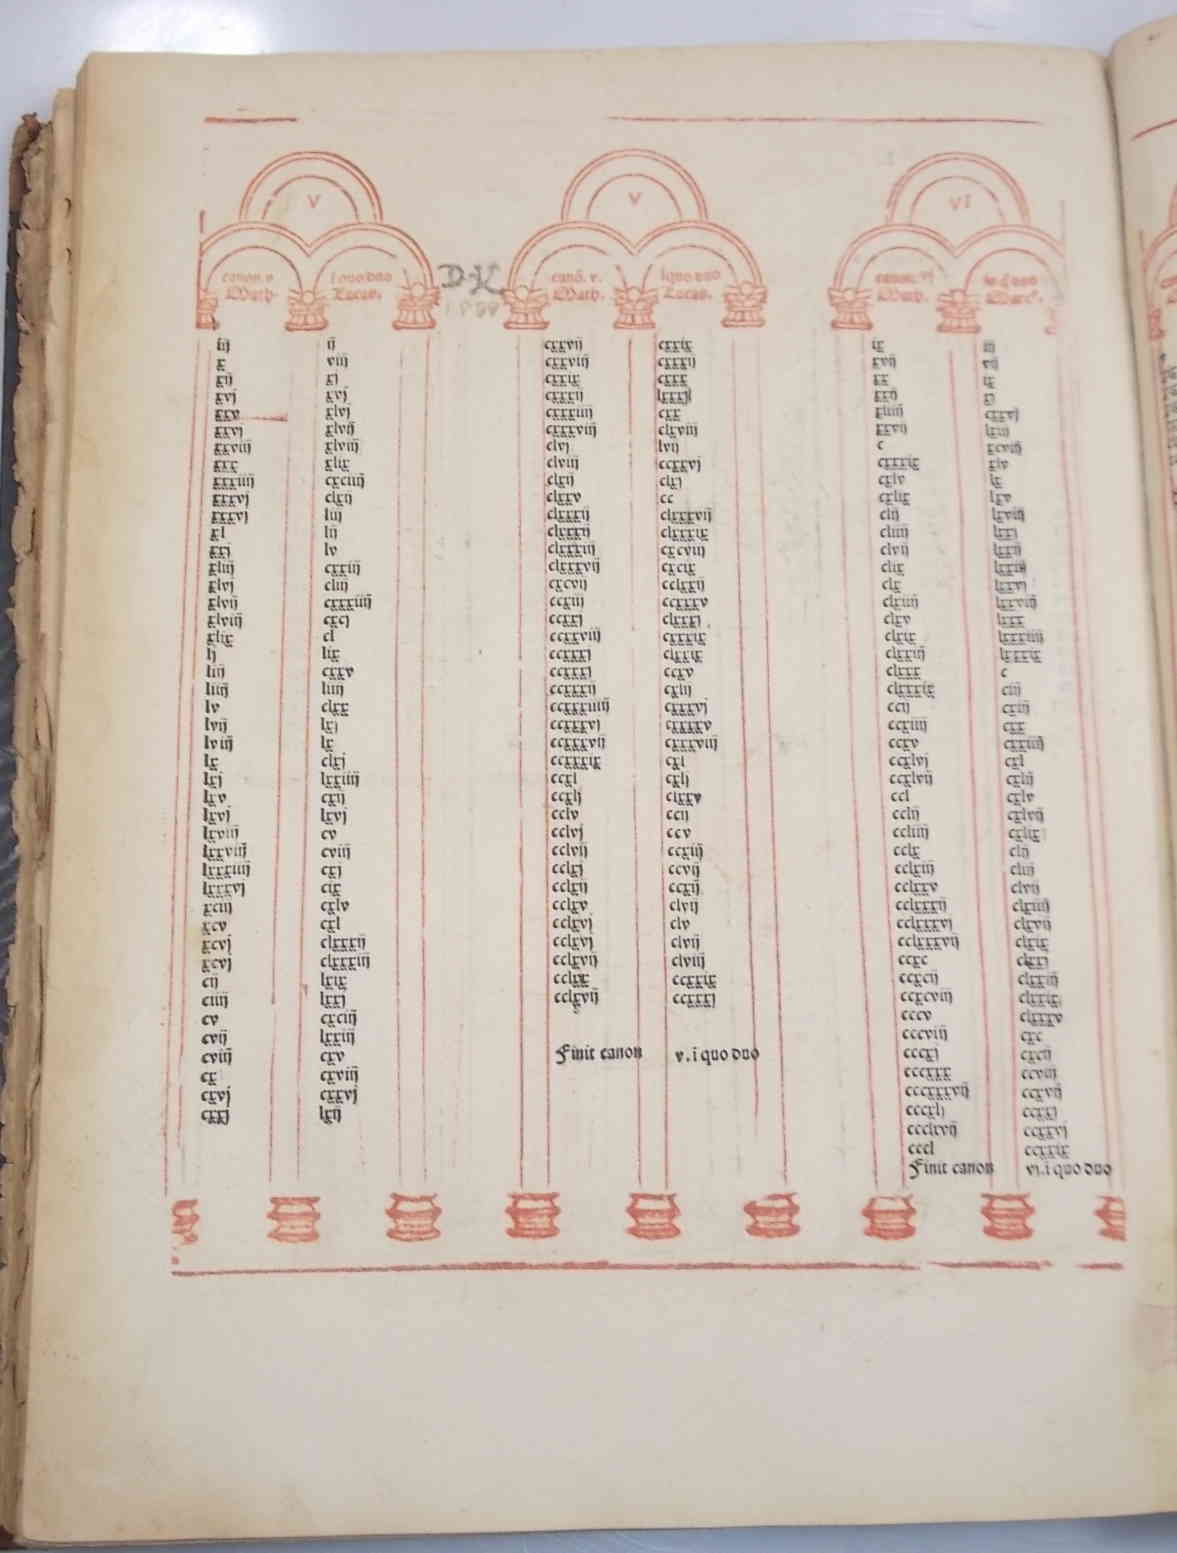 V
canon. v iquo duo
Math. Lucas.
iij ij
x viij
xij xj
xvj xvj
xxv xlvj
xxvj xlvij
xxviij xlviij
xxx xlix
xxxiiij cxciiij
xxxvj clxij
xxxvj liij
xl lij
xxj lv
xliij cxxiij
xlvj cliij
xlvij cxxxiiij
xlviij cxcj
xlix cl
lj lix
liij cxxv
liiij liiij
lv clxx
lvij lxj
lviij lx
lx clxj
lxj lxxiiij
lxv cxij
lxvj lxvj
lxviij cv
lxxviij cviij
lxxxiiij cxj
lxxxvj cix
xciij cxlv
xcv cxl
xcvj clxxxij
xcvj clxxxiiij
cij lxix
ciiij lxxj
cv cxciij
cvij lxxiij
cviij cxv
cx cxviij
cxvj cxxvj
cxxj lxij
D·K
V
canō. v. iquo duo
Math. Lucas.
cxxvij cxxix
cxxviij cxxxij
cxxix cxxx
cxxxij lxxxj
cxxxiiij cxx
cxxxviij clxviij
clvj lvij
clviij ccxxvj
clxij clxj
clxxv cc
clxxxij clxxxvij
clxxxij clxxxix
clxxxiij cxcviij
clxxxvij cxcix
cxcvij cclxxij
ccxiij ccxxxv
ccxxj clxxxj
ccxxviij cxxxix
ccxxxj clxxix
ccxxxj ccxv
ccxxxij cxlij
ccxxxiiij cxxxvj
ccxxxvj cxxxxv
ccxxxvij cxxxviij
ccxxxix cxl
ccxl cxlj
ccxlj clxxv
cclv ccij
cclvj ccv
cclvij ccxiij
cclxj ccvij
cclxij ccxij
cclxv clvij
cclxvj clv
cclxvj clvij
cclxvij clviij
cclxx ccxxix
cclxvij ccxxxj
Finit canon v. i quo duo
VI
canon. vj in q̄ duo
Math. Marc⁹.
ix iij
xvij vij
xx ix
xxij xj
xliiij cxxvj
xxvij lxiij
c xcviij
cxxxix xlv
cxlv lx
cxlix lxv
clij lxviij
cliiij lxxj
clvij lxxij
clix lxxiij
clx lxxvj
clxiiij lxxviij
clxv lxxx
clxix lxxxiiij
clxxiij lxxxix
clxxx c
clxxxix ciij
ccij cxiij
ccxiiij cxx
ccxv cxxiiij
ccxlvj cxl
ccxlvij cxliij
ccl cxlv
cclij cxlvij
ccliiij cxlix
cclx clij
cclxiij cliiij
cclxxv clvij
cclxxxij clxiiij
cclxxxvj clxvij
cclxxxvij clxix
ccxc clxxj
ccxcij clxxiij
ccxcviij clxxix
cccv clxxxv
cccviij cxc
cccxj cxcij
cccxxx ccviij
cccxxxvij ccxvij
cccxlj ccxxj
ccclxvij ccxxvj
cccl ccxxix
Finit canon vj. i quo duo